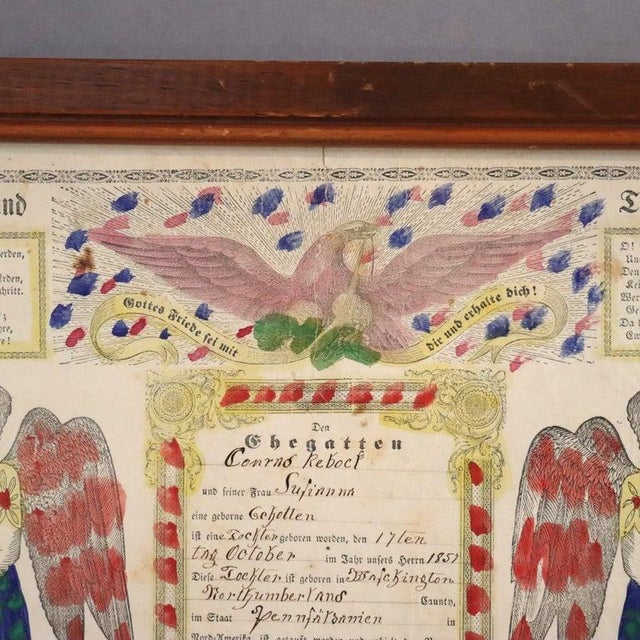 und
T
erden,
rden,
chritt.
;
re,
re!
Gottes Friede sei mit dir und erhalte dich!
O!
Un
Den
Kei
We
Ge
Da
Ew
Den
Ehegatten
Conrad Rebock
und seiner Frau Susianna
eine geborne Scholten
ist eine Tochter geboren worden, den 17ten
tag October im Jahr unsers Herrn 1857
Diese Tochter ist geboren in Waschington
Northumberland County,
im Staat Pennsilvanien in
Nord-Amerika, ist getauft worden und erhielt den